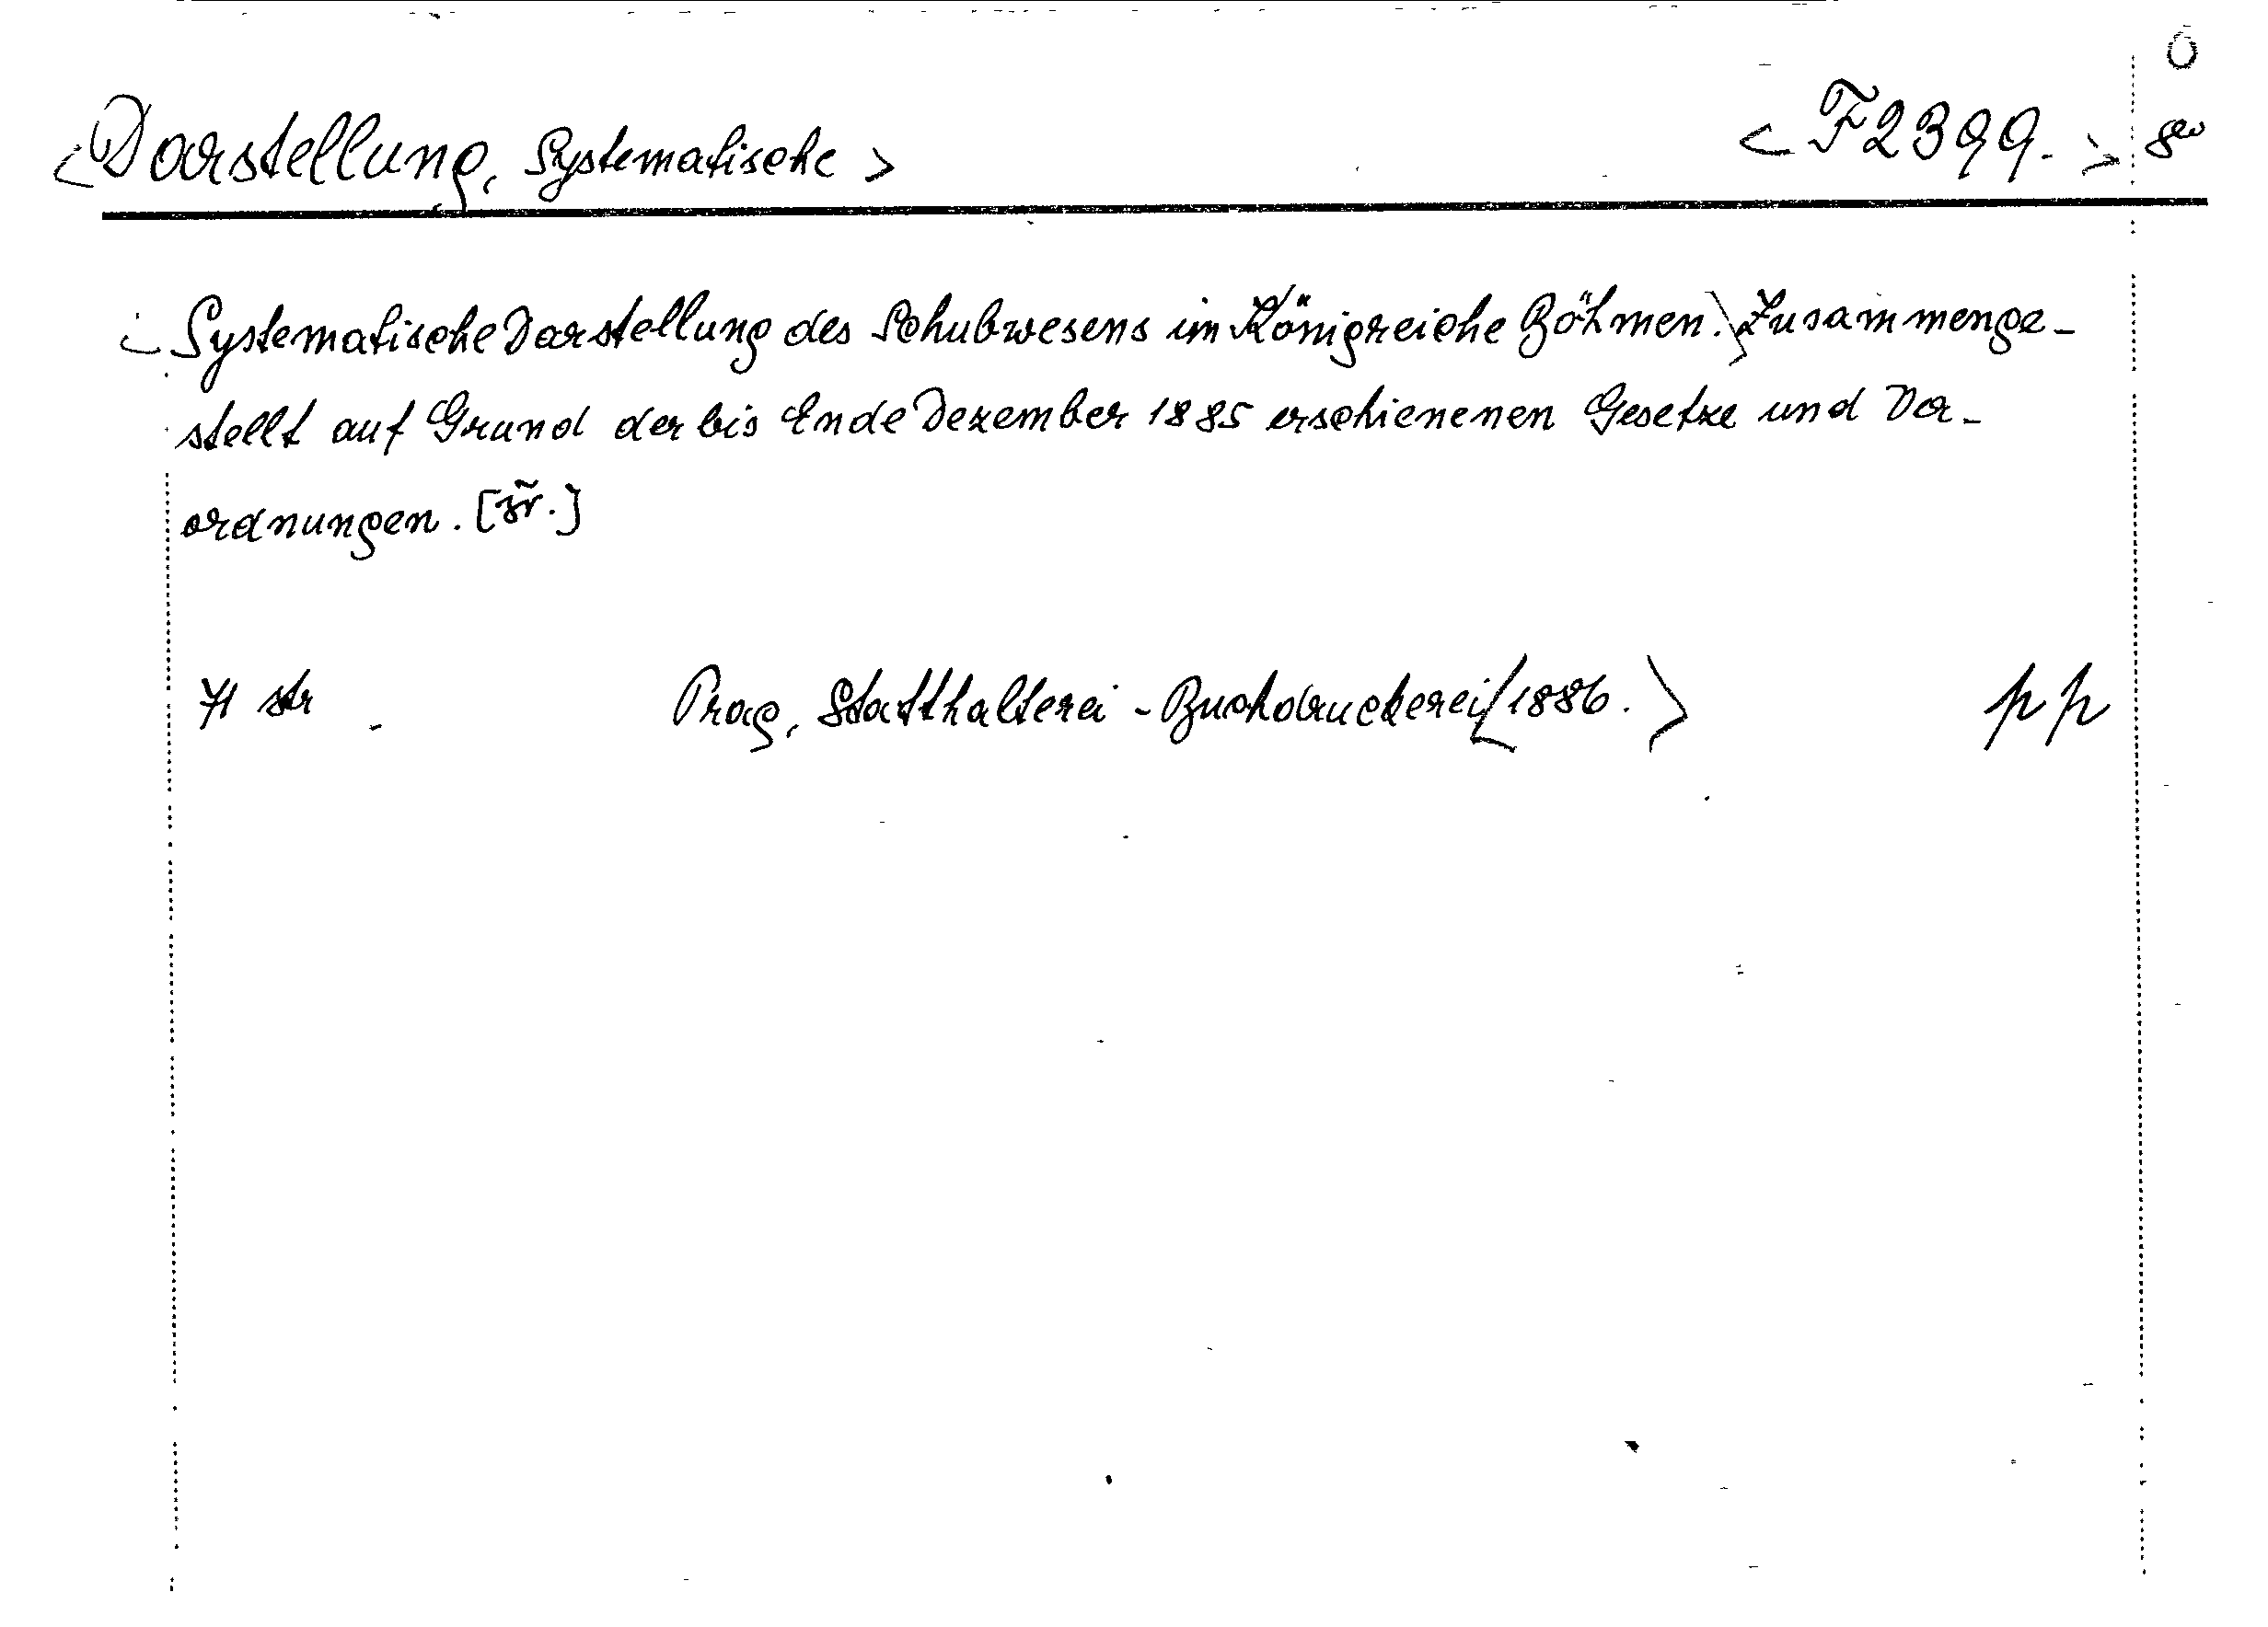 <Darstellung, Systematische> <F2399.> 8°
<Systematische Darstellung des Schubwesens im Königreiche Böhmen.> Zusammenge-
stellt auf Grund der bis Ende Dezember 1885 erschienenen Gesetze und Ver-
ordnungen.
71 str Prag, Statthalterei-Buchdruckerei <1886.> pp